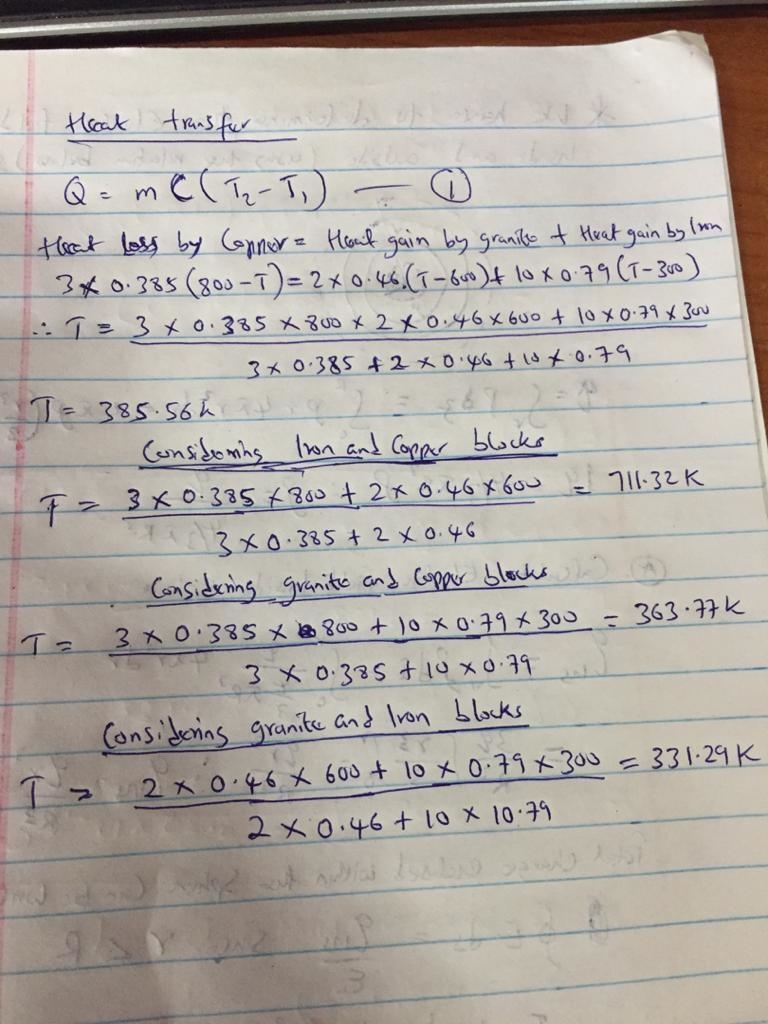 Heat transfer
Q = m C (T₂ - T₁) — ①
Heat loss by Copper = Heat gain by granite + Heat gain by Iron
3 × 0.385 (800 - T) = 2 × 0.46 (T - 600) + 10 × 0.79 (T - 300)
∴ T = 3 × 0.385 × 800 × 2 × 0.46 × 600 + 10 × 0.79 × 300
3 × 0.385 + 2 × 0.46 + 10 × 0.79
T = 385.56k
Considering Iron and Copper blocks
T = 3 × 0.385 × 800 + 2 × 0.46 × 600 = 711.32 K
3 × 0.385 + 2 × 0.46
Considering granite and Copper blocks
T = 3 × 0.385 × 800 + 10 × 0.79 × 300 = 363.77 K
3 × 0.385 + 10 × 0.79
Considering granite and Iron blocks
T = 2 × 0.46 × 600 + 10 × 0.79 × 300 = 331.29 K
2 × 0.46 + 10 × 10.79